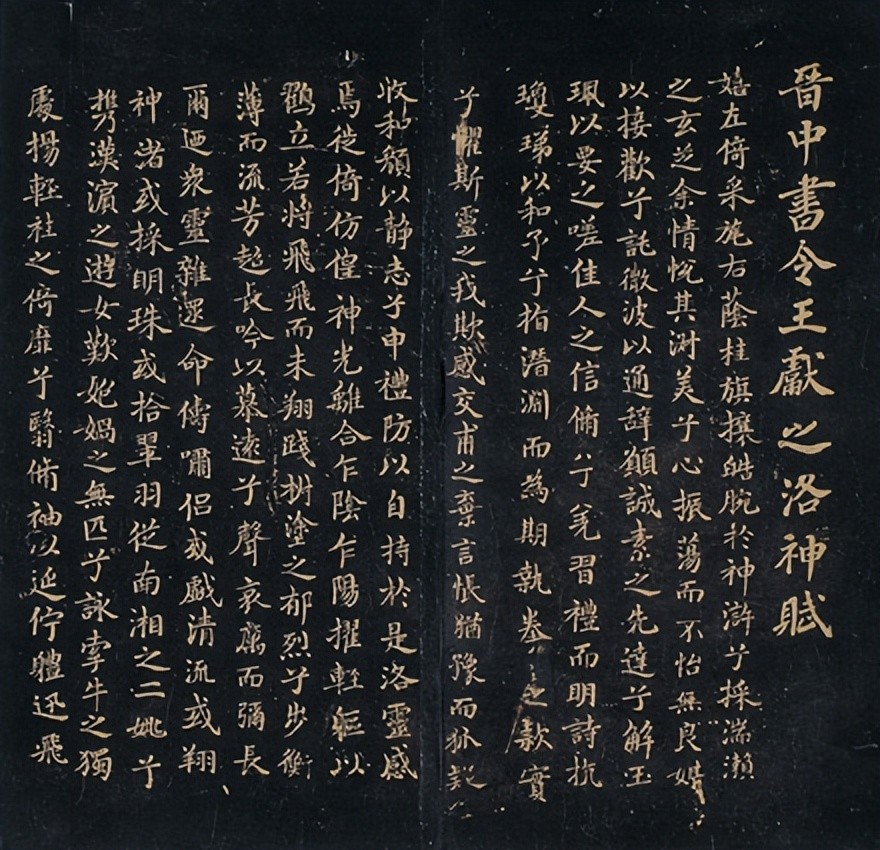 晉中書令王獻之洛神賦
嬉左倚采旄右蔭桂旗攘皓腕於神滸兮採湍瀨
之玄芝余情悅其淑美兮心振蕩而不怡無良媒
以接歡兮託微波以通辭願誠素之先達兮解玉
珮以要之嗟佳人之信脩兮羌習禮而明詩抗
瓊珶以和予兮指潛淵而為期執眷之款實
兮懼斯靈之我欺感交甫之棄言悵猶豫而狐疑
收和顏以静志兮申禮防以自持於是洛靈感
焉徙倚仿偟神光離合乍陰乍陽擢輕軀以
鶴立若將飛飛而未翔踐椒塗之郁烈兮步衡
薄而流芳超長吟以慕遠兮聲哀厲而彌長
爾迺衆靈雜遝命儔嘯侣或戲清流或翔
神渚或採明珠或拾翠羽從南湘之二姚兮
携漢濱之遊女歎媧之無匹兮詠牽牛之獨
處揚輕袿之倚靡兮翳脩袖以延佇體迅飛